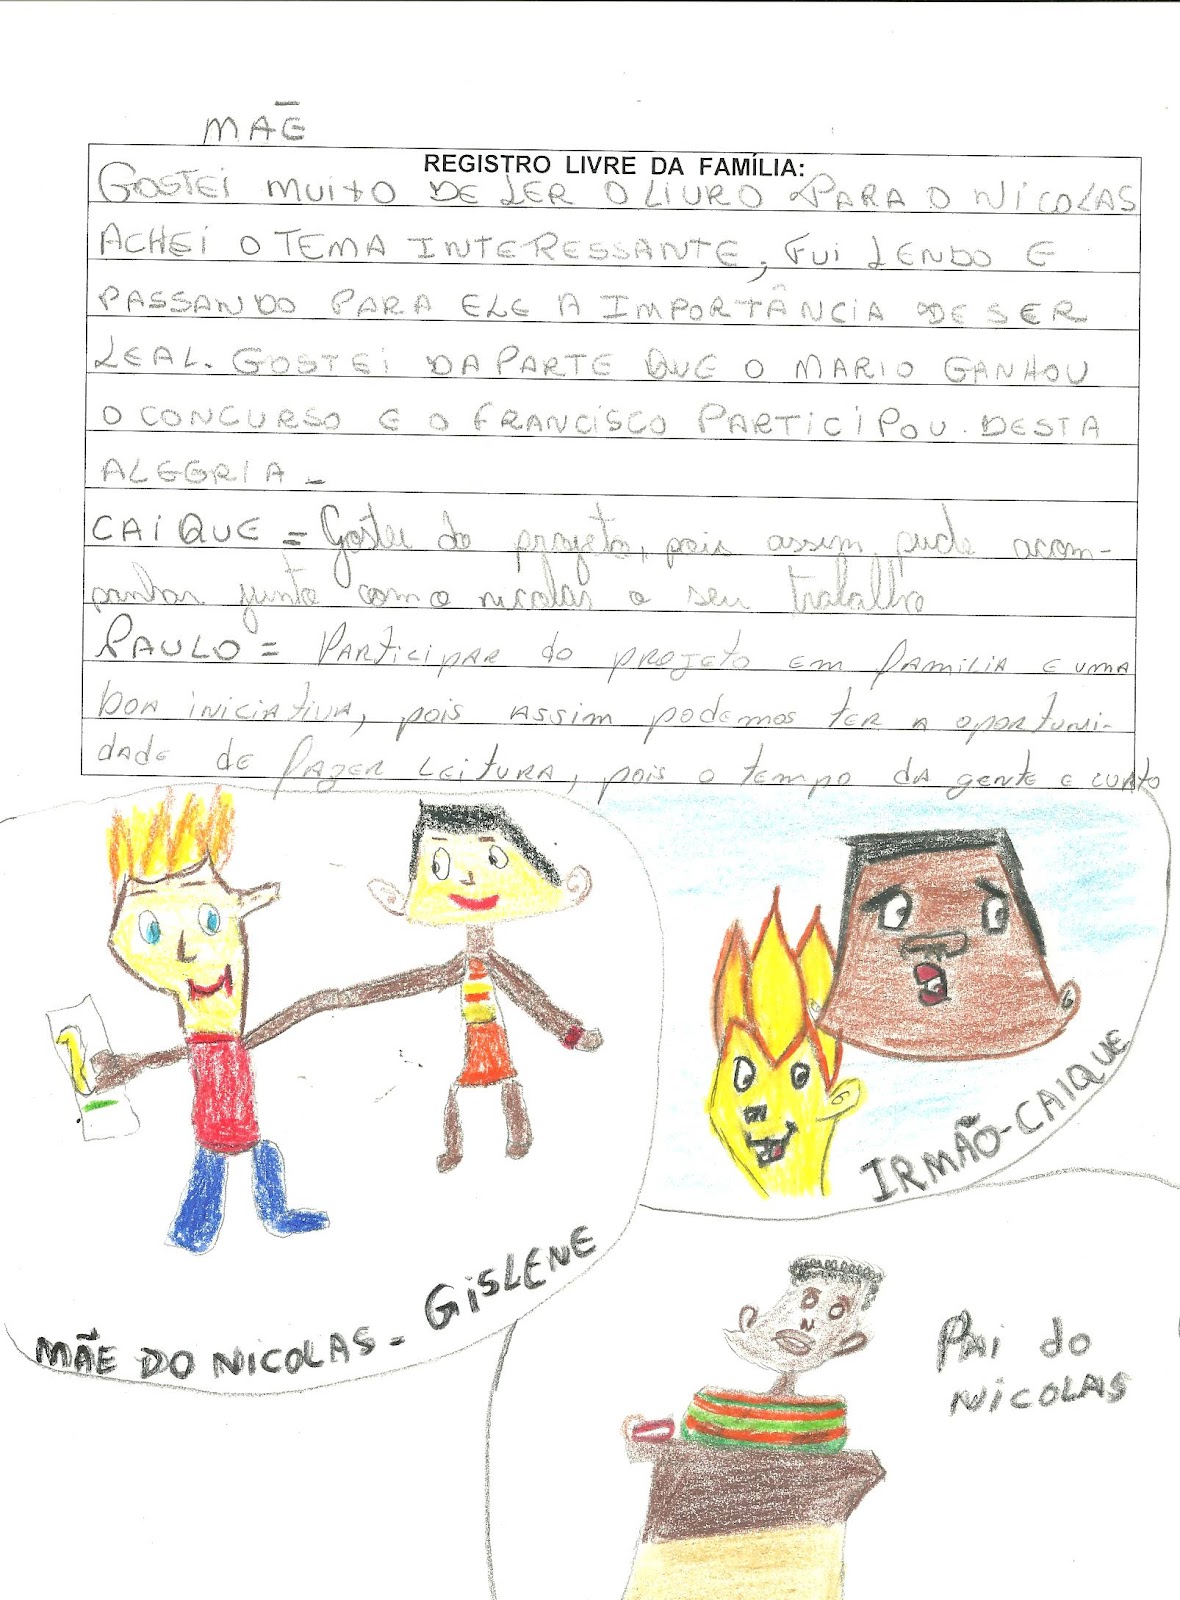 MÃE
REGISTRO LIVRE DA FAMÍLIA:
GOSTEI MUITO DE LER O LIVRO PARA O NICOLAS
ACHEI O TEMA INTERESSANTE, FUI LENDO E
PASSANDO PARA ELE A IMPORTÂNCIA DE SER
LEAL. GOSTEI DA PARTE QUE O MARIO GANHOU
O CONCURSO E O FRANCISCO PARTICIPOU DESTA
ALEGRIA -
CAIQUE = Gostei do projeto, pois assim pude acom-
panhar junto com o nicolas o seu trabalho
PAULO = PARTICIPAR do PROJETO em família e uma
boa iniciativa, pois assim podemos ter a oportuni-
dade de fazer leitura, pois o tempo da gente e curto
MÃE DO NICOLAS - GISLENE
IRMÃO - CAIQUE
PAI do
NICOLAS